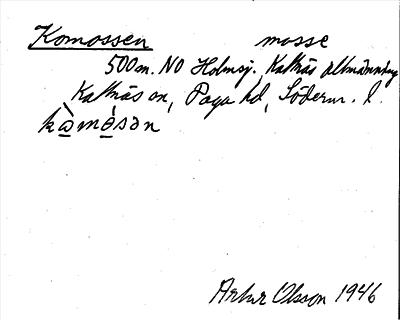 Komossen mosse
500m. NO Holmsj. Kattnäs allmänning
Kattnäs sn, Daga hd, Söderm. l.
kòmòsən
Artur Olsson 1946